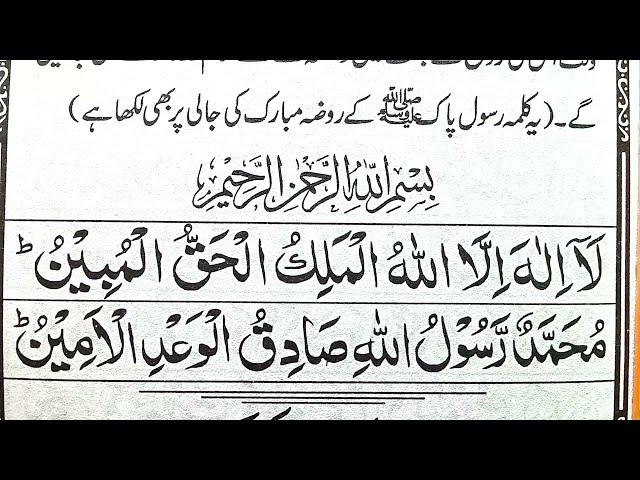 گے۔ (یہ کلمہ رسول پاک ﷺ کے روضہ مبارک کی جالی پر بھی لکھا ہے)
بِسْمِ اللهِ الرَّحْمٰنِ الرَّحِيْمِ
لَآ اِلٰهَ اِلَّا اللهُ الْمَلِكُ الْحَقُّ الْمُبِيْنُ ؕ
مُحَمَّدٌ رَّسُوْلُ اللهِ صَادِقُ الْوَعْدِ الْاَمِيْنُ ؕ